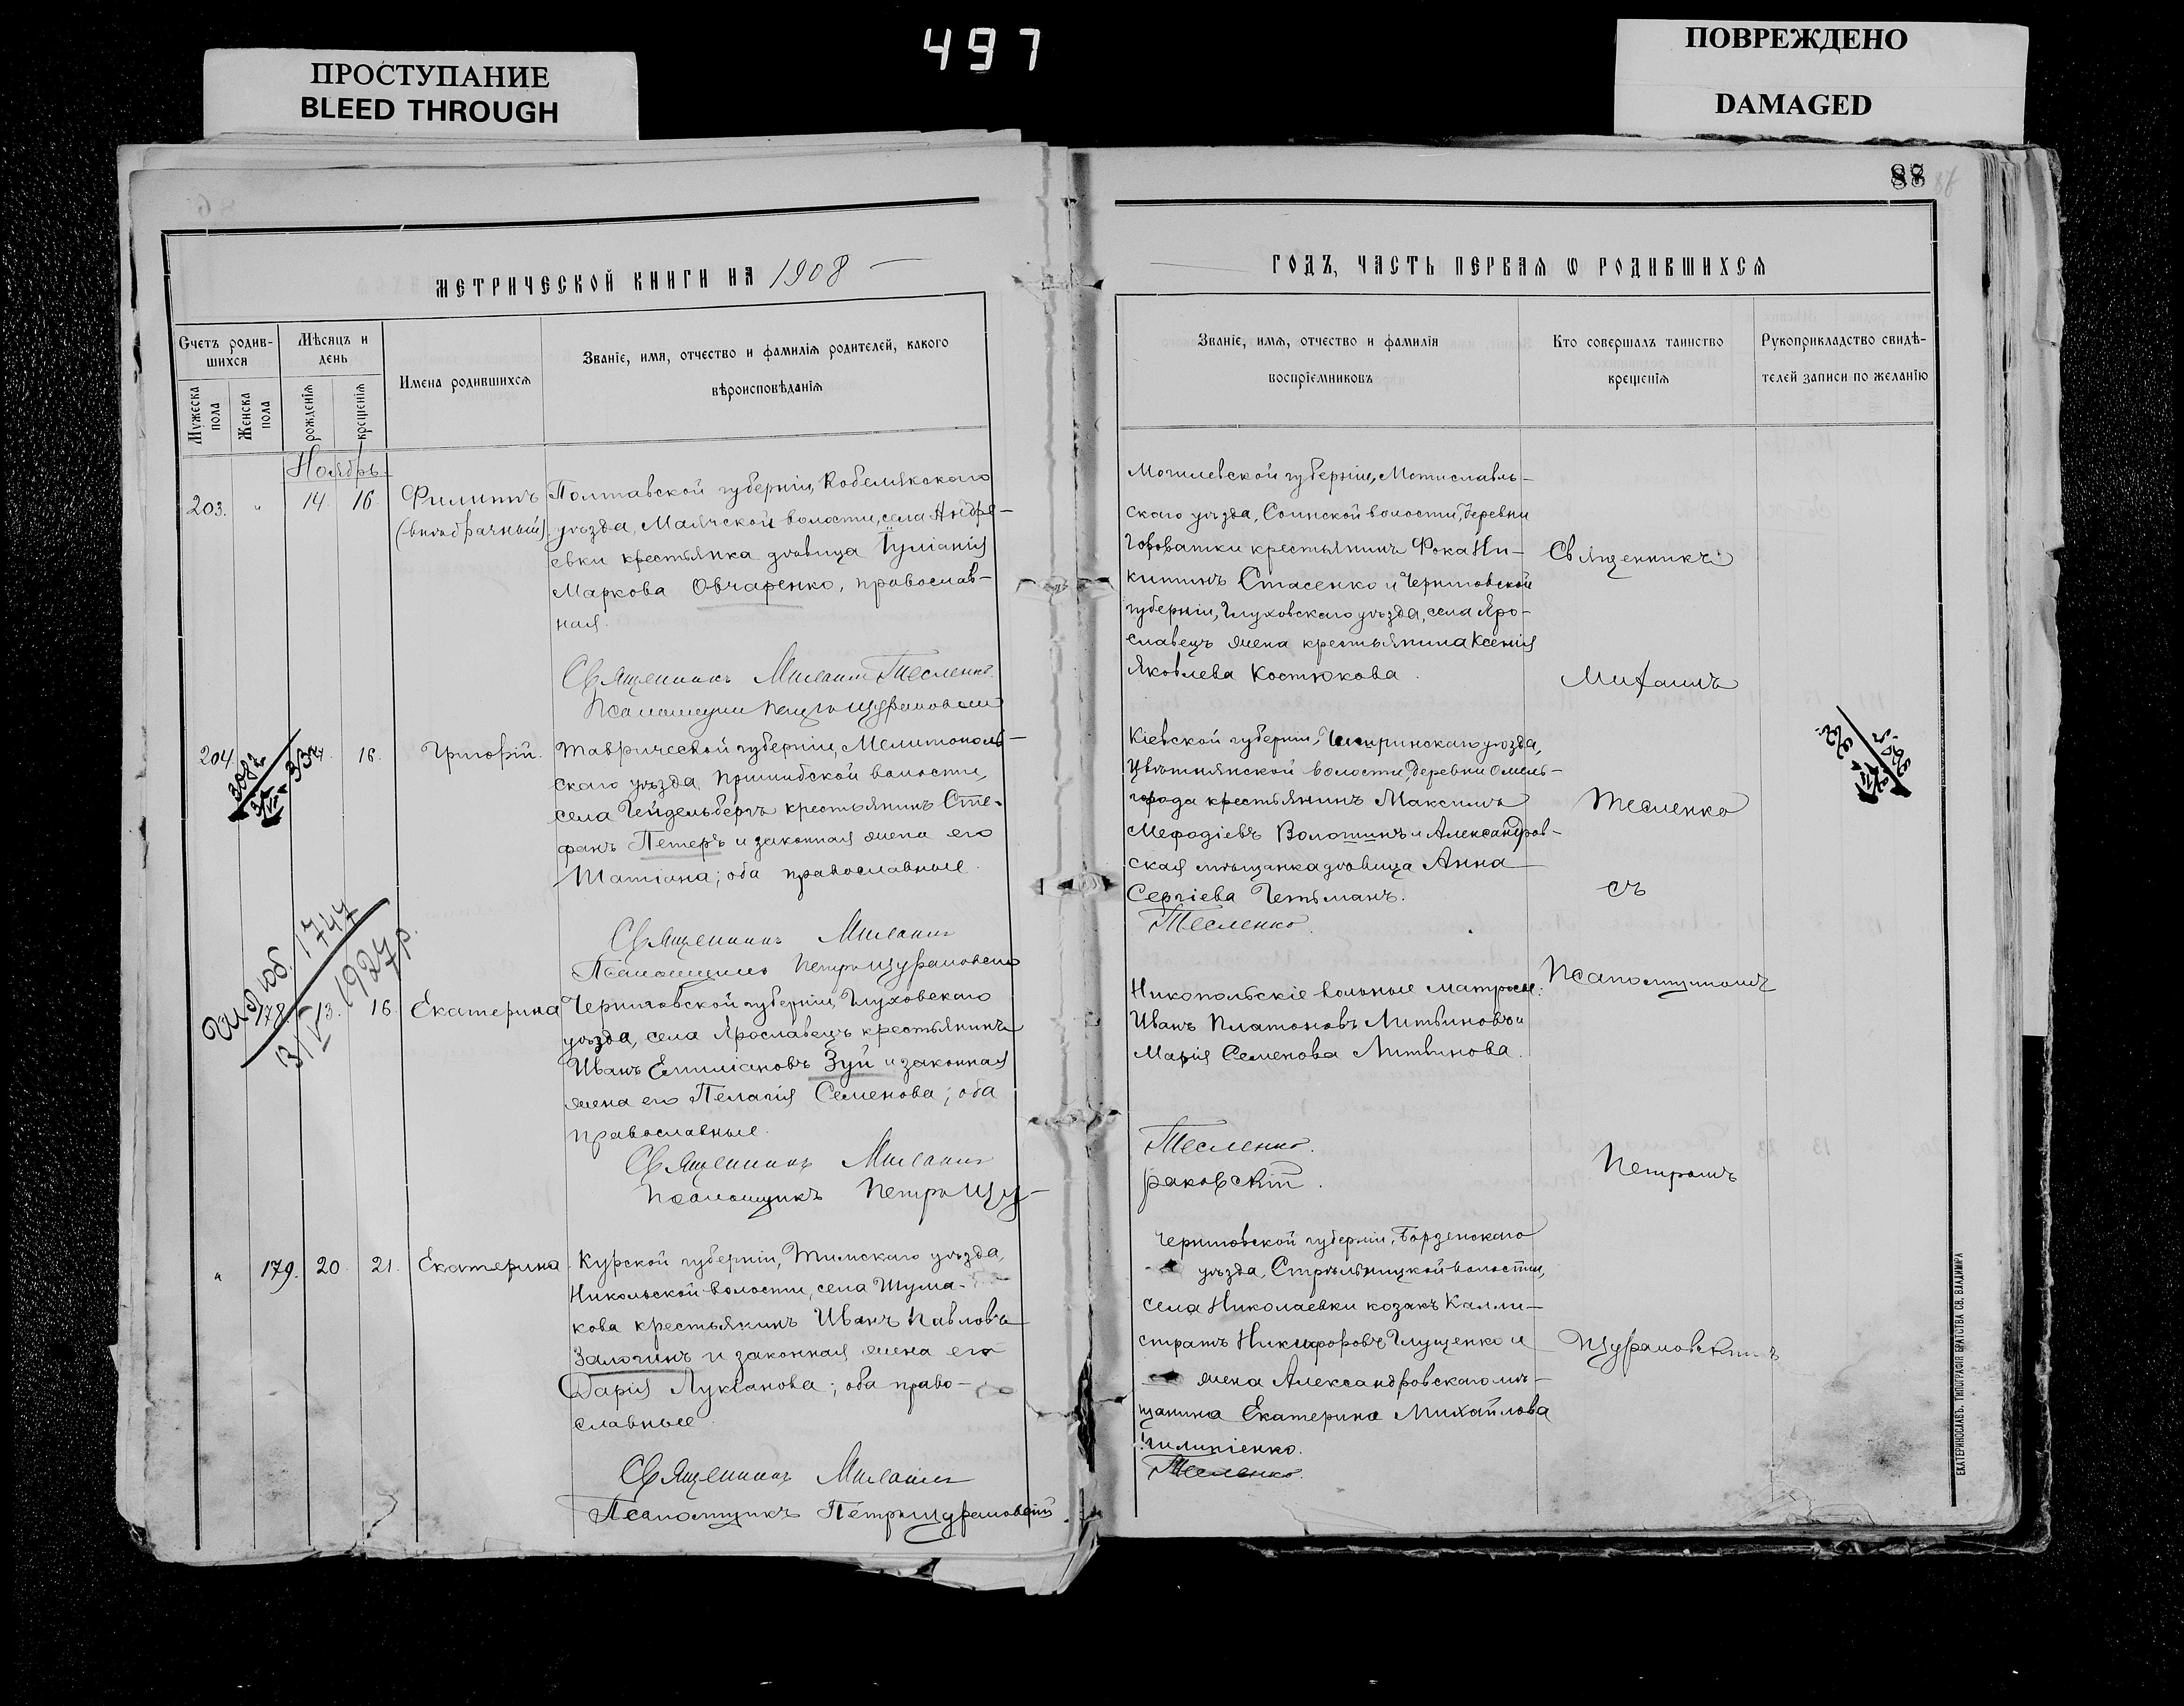 497
ПРОСТУПАНИЕ
BLEED THROUGH
ПОВРЕЖДЕНО
DAMAGED
88
МЕТРИЧЕСКОЙ КНИГИ НА 1908
Счетъ родив-
шихся
Мужеска пола
Женска пола
Мѣсяцъ и
день
рожденія
крещенія
Имена родившихся
Званіе, имя, отчество и фамилія родителей, какого
вѣроисповѣданія
Ноябрь
203. " 14. 16.
Филиппъ
(внѣбрачный)
Полтавской губерніи, Кобелякскаго
уѣзда, Маячской волости, села Андре-
евки крестьянка дѣвица Іуліанія
Маркова Овчаренко, православ-
ная.
Священникъ Михаилъ Тесленко.
Псаломщикъ Петръ Щураковскій
204. 16.
Григорій.
Таврической губерніи, Мелитополь-
скаго уѣзда, Пришибской волости,
села Гейдельбергъ крестьянинъ Сте-
фанъ Петеръ и законная жена его
Татіана; оба православные.
Священникъ Михаилъ
Псаломщикъ Петръ Щураковскій
178. 13. 16.
1747
1927 р.
Екатерина
Черниговской губерніи, Глуховскаго
уѣзда, села Ярославецъ крестьянинъ
Иванъ Емиліановъ Зуй и законная
жена его Пелагія Семенова; оба
православные.
Священникъ Михаилъ
Псаломщикъ Петръ Щу-
" 179. 20. 21.
Екатерина.
Курской губерніи, Тимскаго уѣзда,
Никольской волости, села Шума-
кова крестьянинъ Иванъ Павловъ
Залогинъ и законная жена его
Дарія Лукіанова; оба право-
славные.
Священникъ Михаилъ
Псаломщикъ Петръ Щураковскій
ГОДЪ, ЧАСТЬ ПЕРВАЯ Ѡ РОДИВШИХСЯ
Званіе, имя, отчество и фамилія
воспріемниковъ
Кто совершалъ таинство
крещенія
Рукоприкладство свидѣ-
телей записи по желанію
Могилевской губерніи, Мстиславль-
скаго уѣзда, Соинской волости, деревни
крестьянинъ Фока Ни-
китинъ Стасенко и Черниговской
губерніи, Глуховскаго уѣзда, села Яро-
славецъ жена крестьянина Ксенія
Яковлева Костюкова.
Кіевской губерніи, Чигиринскаго уѣзда,
Цвѣтнянской волости, деревни Омель-
города крестьянинъ Максимъ
Мефодіевъ Волошинъ и Александров-
ская мѣщанка дѣвица Анна
Сергіева Гетьманъ.
Тесленко.
Никопольскіе вольные матросы:
Иванъ Платоновъ Литвиновъ и
Марія Семенова Литвинова.
Тесленко.
раковскій.
Черниговской губерніи, Борзенскаго
уѣзда, Стрѣльницкой волости,
села Николаевки козакъ Калли-
стратъ Никифоровъ Глущенко и
жена Александровскаго мѣ-
щанина Екатерина Михайлова
Тесленко.
Священникъ
Михаилъ
Тесленко
съ
Псаломщикомъ
Петромъ
Щураковскимъ
ЕКАТЕРИНОСЛАВЪ. ТИПОГРАФІЯ БРАТСТВА СВ. ВЛАДИМІРА